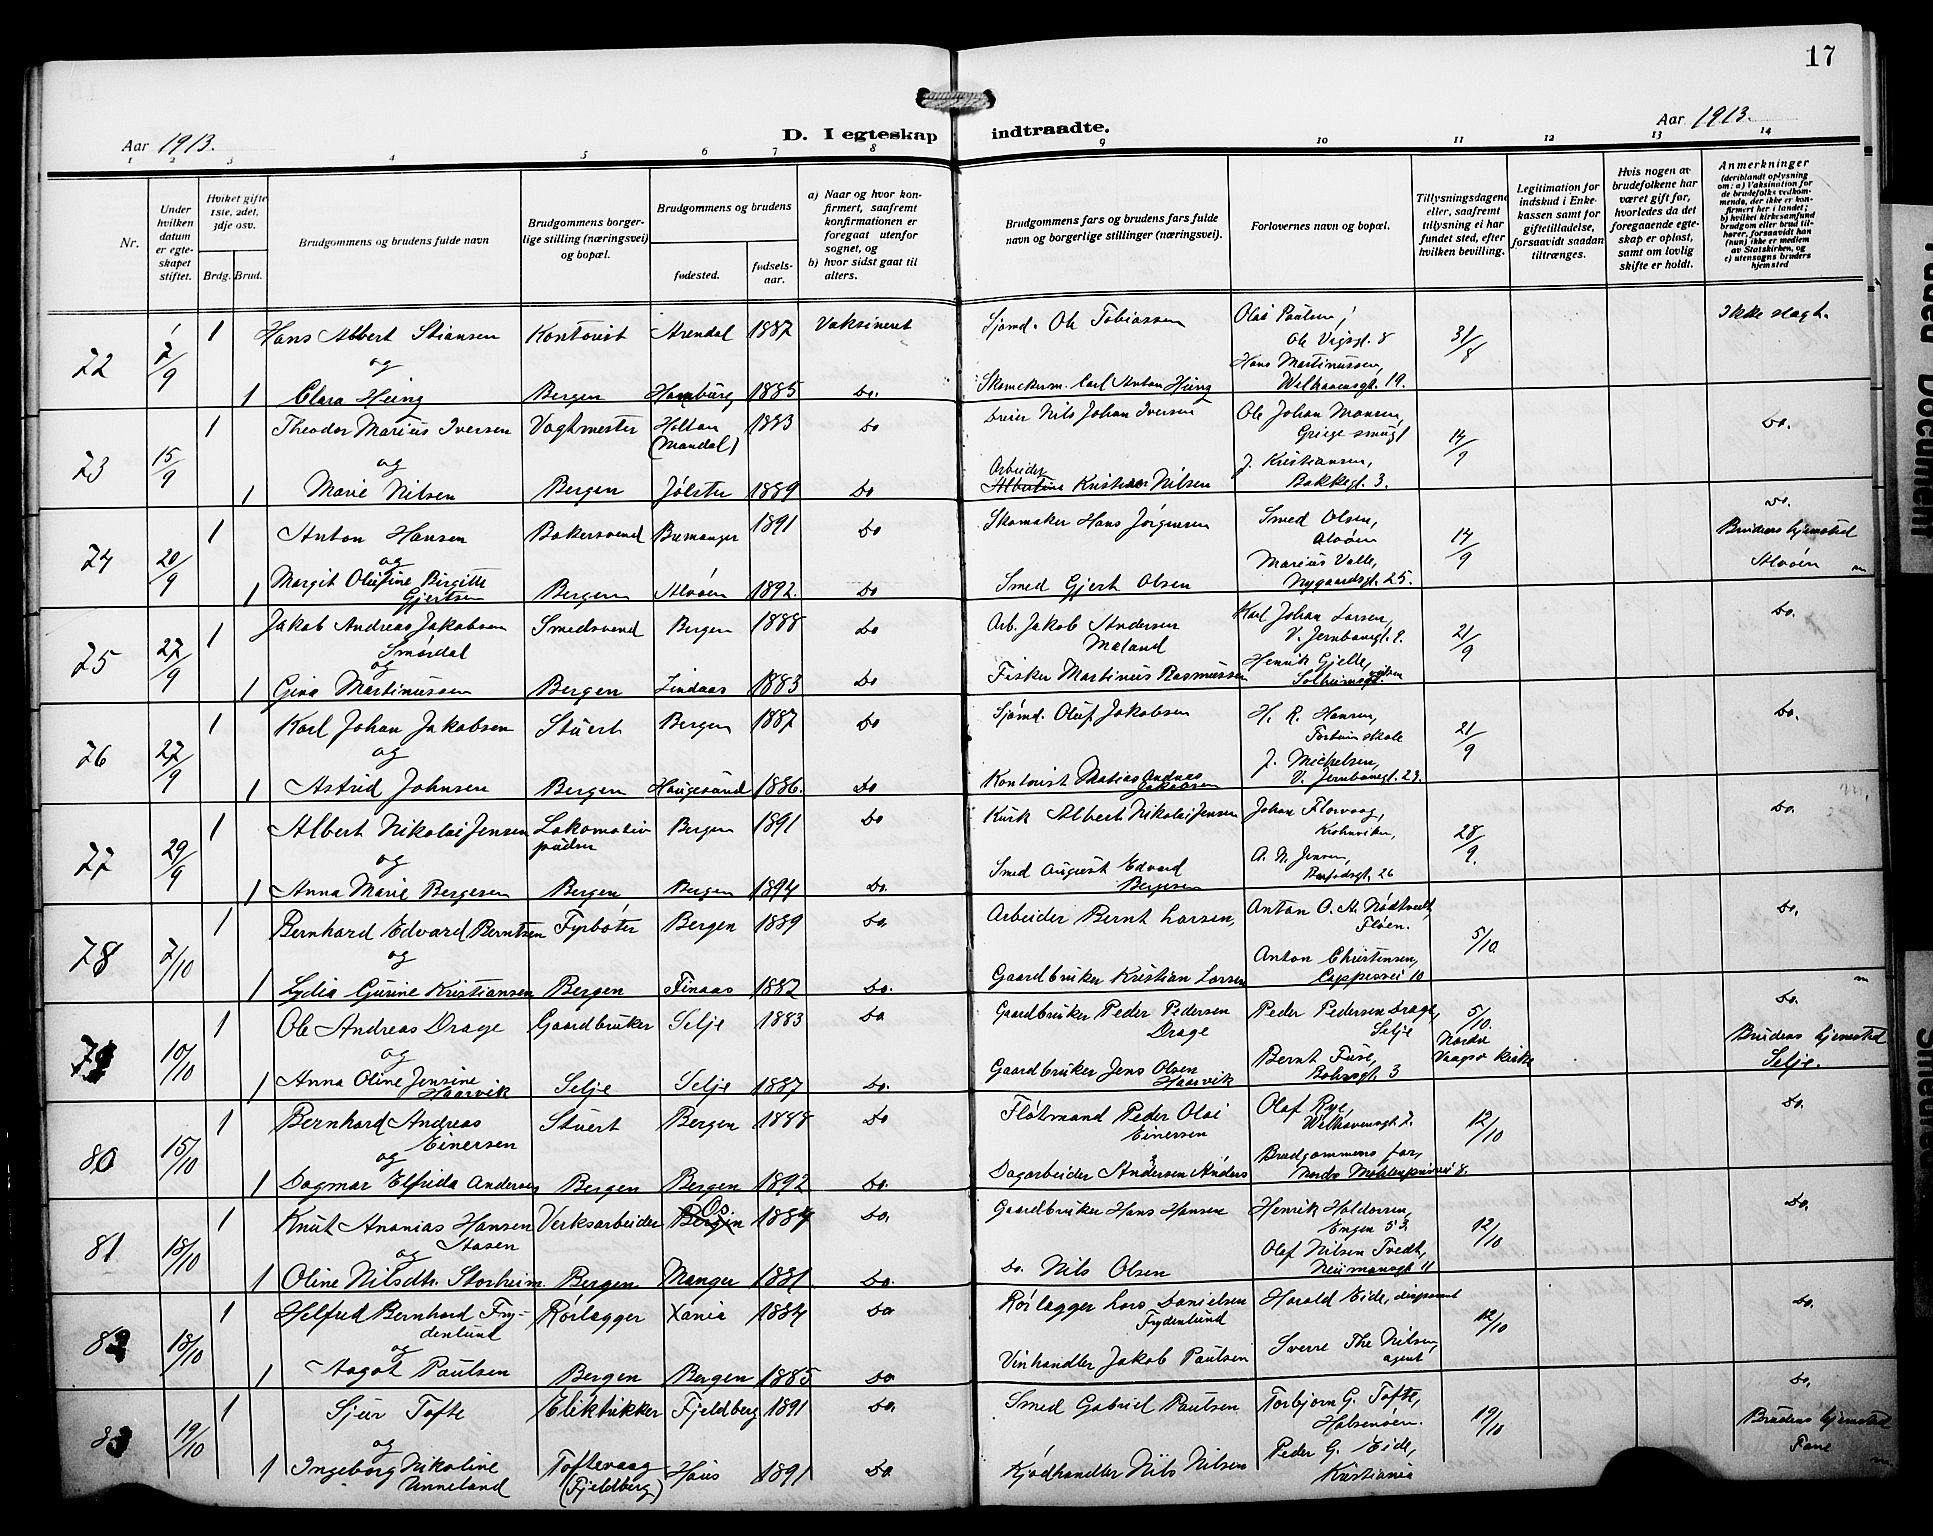 17
Aar 1913.
D. I egteskap indtraadte.
Aar 1913.
1 2 3 4 5 6 7 8 9 10 11 12 13 14
Nr.
Under hvilken datum er egteskapet stiftet.
Hvilket gifte 1ste, 2det, 3dje osv.
Brdg. Brud.
Brudgommens og brudens fulde navn
Brudgommens borgerlige stilling (næringsvei) og bopæl.
Brudgommens og brudens
fødested.
fødselsaar.
a) Naar og hvor konfirmert, saafremt konfirmationen er foregaat utenfor sognet, og
b) hvor sidst gaat til alters.
Brudgommens fars og brudens fars fulde navn og borgerlige stillinger (næringsvei).
Forlovernes navn og bopæl.
Tillysningsdagene eller, saafremt tillysning ei har fundet sted, efter hvilken bevilling.
Legitimation for indskud i Enkekassen samt for giftetilladelse, forsaavidt saadan tiltrænges.
Hvis nogen av brudefolkene har været gift før, hvorledes da det foregaaende egteskap er opløst, samt om lovlig skifte er holdt.
Anmerkninger
(deriblandt oplysning om: a) Vaksination for de brudefolks vedkommende, der ikke er konfirmert her i landet; b) hvilket kirkesamfund brudgom eller brud tilhører, forsaavidt han (hun) ikke er medlem av Statskirken, og c) utensogns bruders hjemsted
72 7/9 1 Hans Albert Stiansen Kontorist Arendal 1887 Vaksineret Sjømd. Ole Tobiassen Olai Paulsen, Ole Vigsgt. 8 31/8 Ikke slegt.
og Hans Martinussen,
1 Clara Heing Bergen Hamburg 1885 Do. Skomakerm. Carl Anton Heing Welhavensgt. 19.
73 15/9 1 Theodor Marius Iversen Vogtmester Holtan (Mandal) 1883 Do Dreier Nils Johan Iversen Ole Johan Monsen, Griegs smug 14/9 Do.
og Arbeider J. Kristiansen,
1 Marie Nilsen Bergen Jølster 1889 Do Kristian Nilsen Bakkegt. 3.
74 20/9 1 Anton Hansen Bakersvend Bremanger 1891 Do Skomaker Hans Jørgensen Smed Olsen, Alvøen 14/9 Do. Brudens hjemsted Alvøen
og
1 Margit Olufine Birgitte Gjertsen Bergen Alvøen 1892. Do Smed Gjert Olsen Marius Valle, Nygaardsgt. 25.
75 27/9 1 Jakob Andreas Jakobsen Smørdal Smedsvend Bergen 1888 Do Arb. Jakob Andersen Maland Karl Johan Larsen, V. Jernbanegt. 9. 21/9 Do.
og
1 Gina Martinussen Bergen Lindaas 1883 Do Fisker Martinus Rasmussen Henrik Gjelle, Solheimsgt.
76 27/9 1 Karl Johan Jakobsen Stuert Bergen 1887 Do Sjømd. Oluf Jakobsen H. R. Hansen, Fortun skole 21/9 Do.
og
1 Astrid Johnsen Bergen Haugesund 1886. Do Kontorist Matias Andreas Jakobsen J. Michelsen, V. Jernbanegt. 23.
77 29/9 1 Albert Nikolai Jensen Lokomotivpudser Bergen 1891 Do Kusk Albert Nikolai Jensen Johan Florvaag, Krohnviken, 28/9. Do.
og
1 Anna Marie Bergesen Bergen Bergen 1894 Do. Smed August Edvard Bergesen A. N. Jensen,
78 7/10 1 Bernhard Edvard Berntsen Fyrbøter Bergen 1889 Do. Arbeider Bernt Larsen, Anton O. A. Nødtvedt, Fløen. 5/10 Do.
og
1 Lydia Gurine Kristiansen Bergen Finaas 1887 Do. Gaardbruker Kristian Larsen Anton Christensen, Cappesvei 10
79 10/10 1 Ole Andreas Drage Gaardbruker Selje 1883 Do Gaardbruker Peder Pedersen Drage Peder Pedersen Drage, Selje 5/10. Nordre Vaagsø kirke Do. Brudens hjemsted Selje.
og
1 Anna Oline Jensine Haarvik Selje Selje 1887 Do. Gaardbruker Jens Olsen Haarvik Bernt Fure, Bohrsgt. 3
80 15/10 1 Bernhard Andreas Einersen Stuert Bergen 1888 Do Fløtmand Peder Olai Einersen Olaf Rye, Welhavensgt 7. 12/10 Do.
og
1 Dagmar Elfrida Andersen Bergen Bergen 1892 Do. Dagarbeider Andersen Anders Brudgommens far, Nordre Møhlenprisvei 8.
81 18/10 1 Knut Ananias Hansen Aasen Verksarbeider Bergen Os. 1884 Do. Gaardbruker Hans Hansen Henrik Haldorsen, Engen 53. 12/10 Do.
og
1 Oline Nilsdtr. Storheim. Bergen Manger 1881. Do. Do. Nils Olsen Olaf Nilsen Tvedt, Neumansgt 11
82 18/10 1 Helfred Bernhard Frydenlund Rørlægger Xania 1884 Do Rørlægger Lars Danielsen Frydenlund Harald Eide, disponent 12/10 Do.
og
1 Aagot Paulsen Bergen Bergen 1885 Do Vinhandler Jakob Paulsen Sverre The Nilsen, agent
83 19/10 1 Sjur Tofte Elektrikker Fjeldberg 1891 Do. Smed Gabriel Paulsen Torbjørn G. Tofte, Halsenøen. 19/10 Do. Brudens hjemsted Fane
og
1 Ingeborg Nikoline Unneland Toftevaag (Fjeldberg) Haus 1891 Do. Kjødhandler Nils Nilsen Peder G. Eide, Kristiania
Faded Document